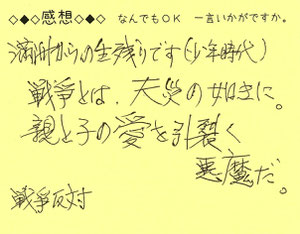 ◇◆◇感想◇◆◇ なんでもOK 一言いかがですか。
満州からの生残りです(少年時代)
戦争とは、天災の如きに。
親と子の愛を引裂く
悪魔だ。
戦争反対